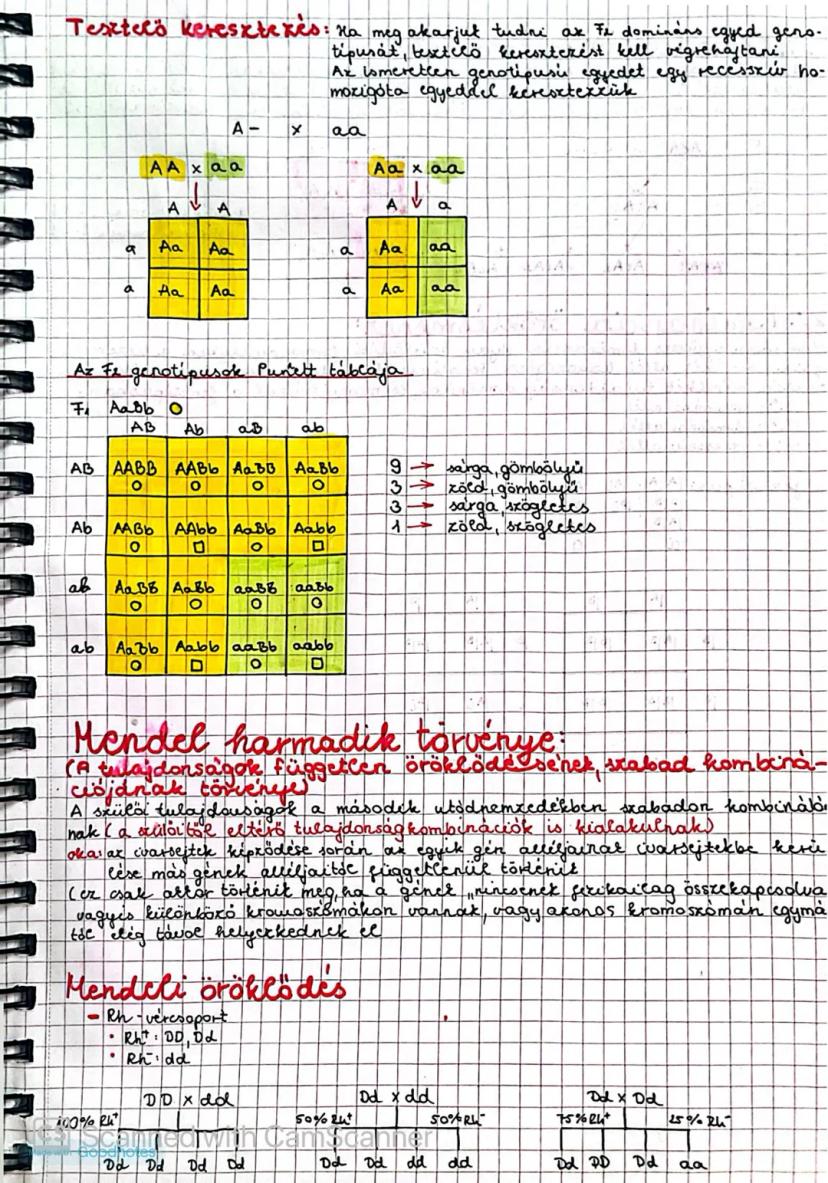 Tesztelő keresztezés: Ha meg akarjuk tudni az F2 domináns egyed geno-
típusát, tesztelő keresztezést kell végrehajtani
Az ismeretlen genotípusú egyedet egy recesszív ho-
mozigóta egyeddel keresztezzük
A- x aa
AA x aa
Aa x aa
A A
A a
a Aa Aa
a Aa aa
a Aa Aa
a Aa aa
Az F2 genotípusok Punett táblája
F1 AaBb
AB Ab aB ab
AB AABB AABb AaBB AaBb
9 → sárga, gömbölyű
3 → zöld, gömbölyű
3 → sárga, szögletes
1 → zöld, szögletes
Ab AABb AAbb AaBb Aabb
aB AaBB AaBb aaBB aaBb
ab AaBb Aabb aaBb aabb
Mendel harmadik törvénye:
(A tulajdonságok független öröklődésének, szabad kombiná-
ciójának törvénye)
A szülői tulajdonságok a második utódnemzedékben szabadon kombináló
nak (a szülőitől eltérő tulajdonságkombinációk is kialakulnak)
oka: az ivarsejtek képződése során az egyik gén alléljainak ivarsejtekbe kerü
lése más gének alléljaitól függetlenül történik
(ez csak akkor történik meg, ha a gének „nincsenek fizikailag összekapcsolva
vagyis különböző kromoszómákon vannak, vagy azonos kromoszómán egymá
tól elég távol helyezkednek el
Mendeli öröklődés
- Rh-vércsoport
• Rh+: DD, Dd
• Rh-: dd
DD x dd
Dd x dd
Dd x Dd
100% Rh+
50% Rh+ 50% Rh-
75% Rh+ 25% Rh-
Scanned with CamScanner
Made with Goodnotes
Dd Dd Dd Dd
Dd Dd dd dd
Dd DD Dd aa